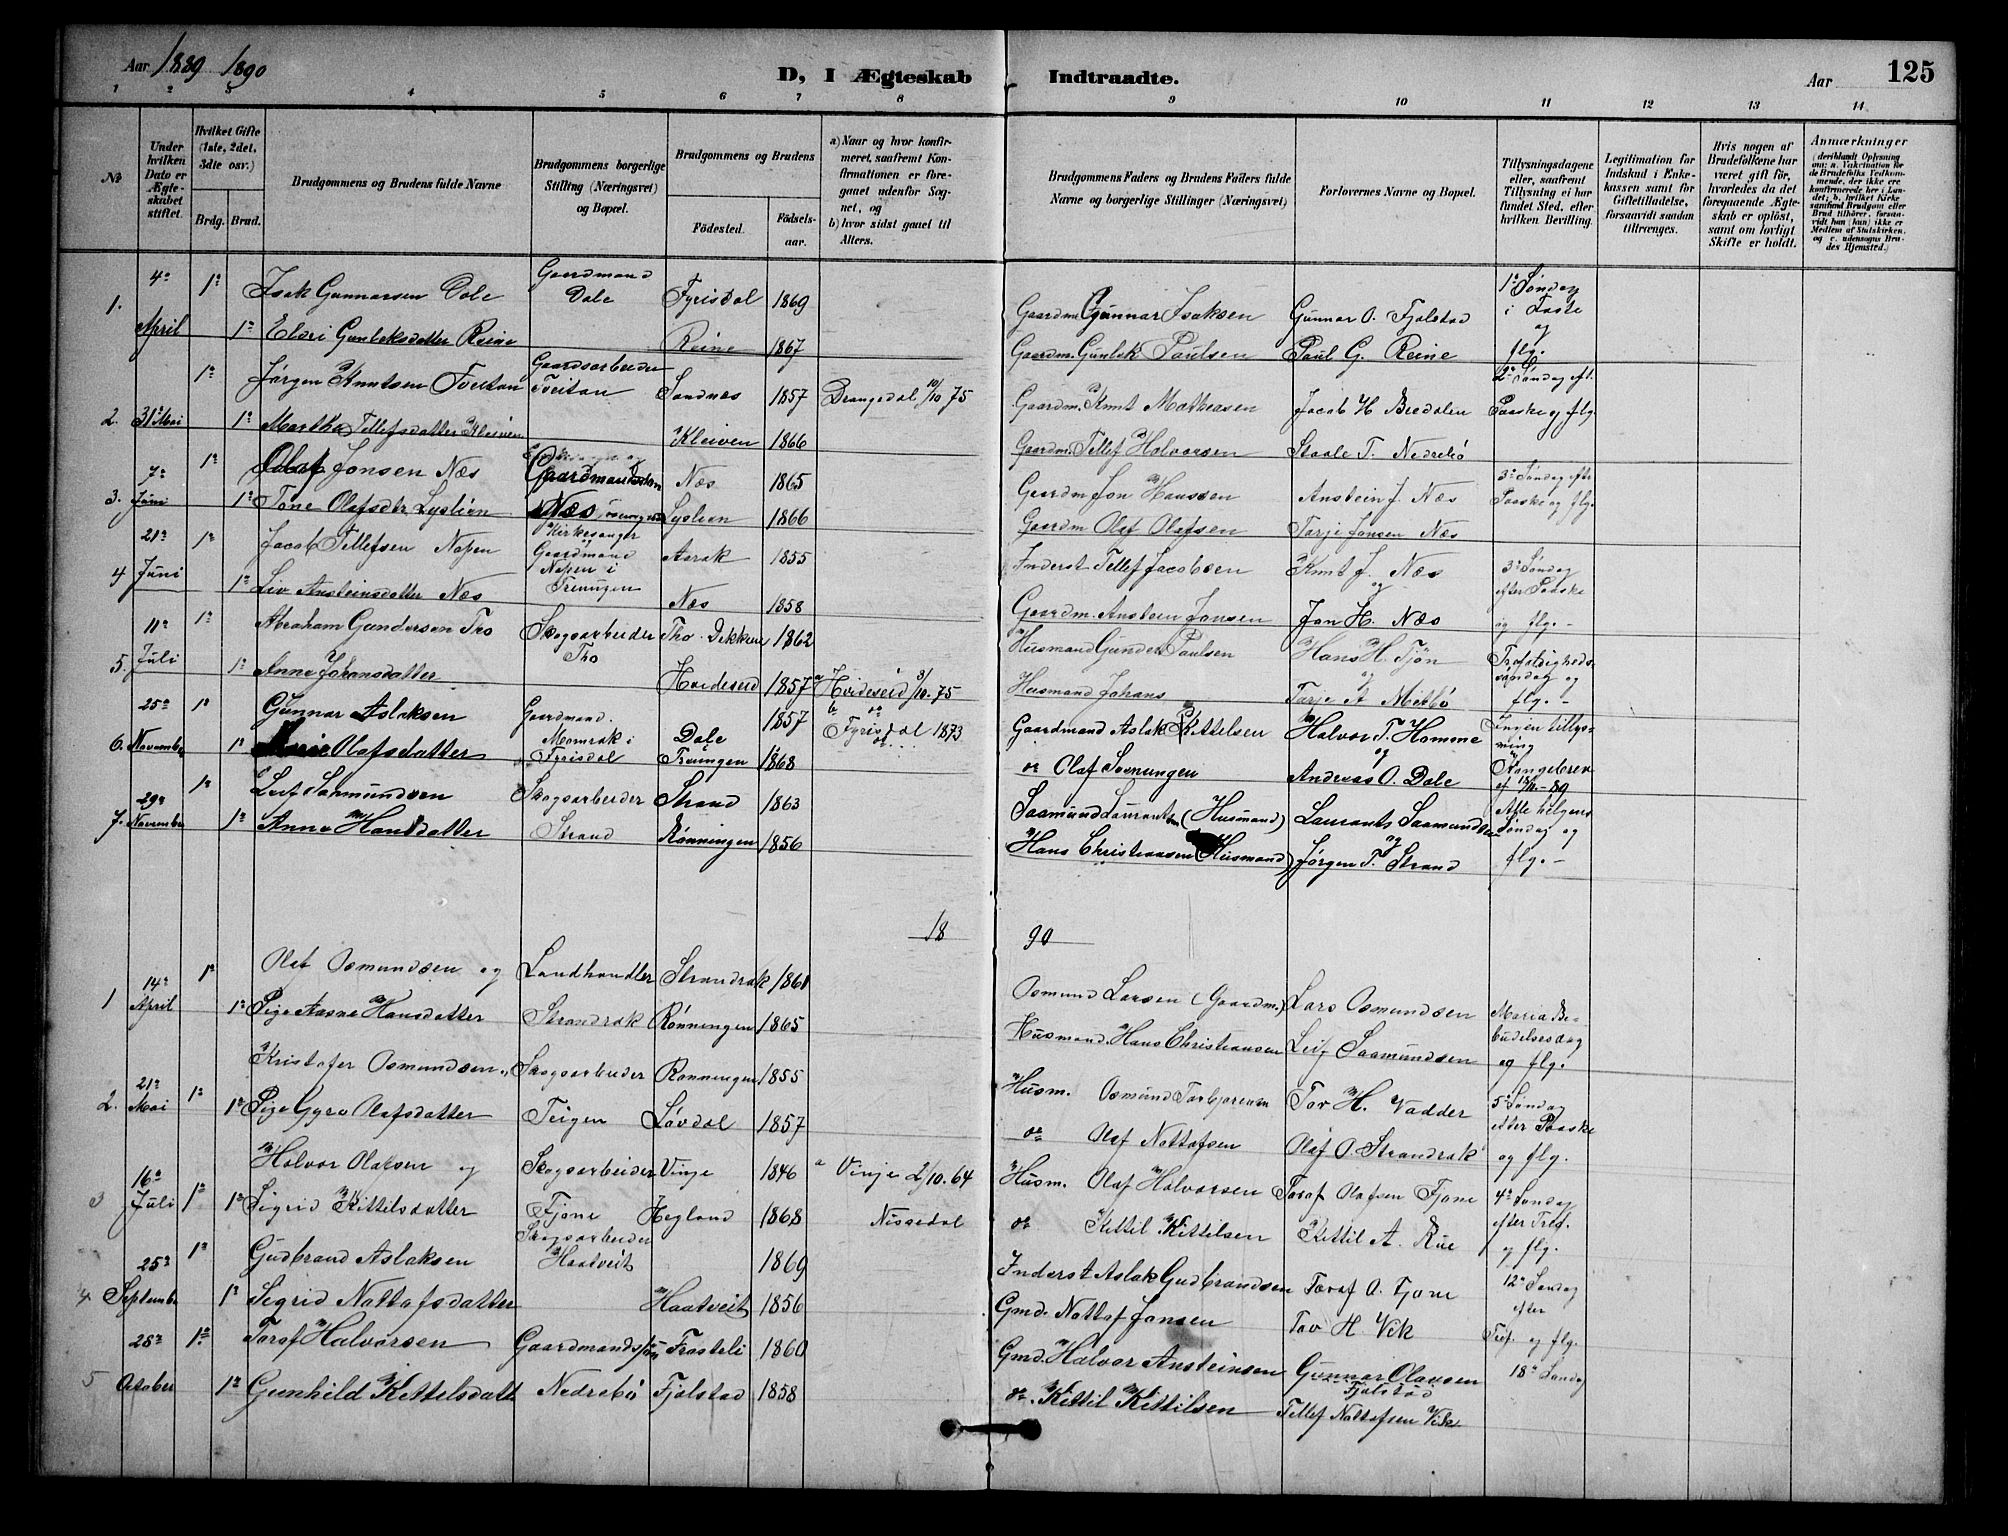 Aar 1889 1890
D, I Ægteskab Indtraadte.
Aar 125
1 2 3 4 5 6 7 8 9 10 11 12 13 14
№
Under hvilken Dato er Ægteskabet stiftet.
Hvilket Gifte (1ste, 2det, 3die osv.)
Brdg. Brud.
Brudgommens og Brudens fulde Navne
Brudgommens borgerlige Stilling (Næringsvei) og Bopæl.
Brudgommens og Brudens
Födested.
Födsels-aar.
a) Naar og hvor konfirmeret, saafremt Konfirmationen er foregaaet udenfor Sognet, og
b) hvor sidst gaaet til Alters.
Brudgommens Faders og Brudens Faders fulde Navne og borgerlige Stillinger (Næringsvei)
Forlovernes Navne og Bopæl.
Tillysningsdagene eller, saafremt Tillysning ei har fundet Sted, efter hvilken Bevilling.
Legitimation for Indskud i Enkekassen samt for Giftetilladelse, forsaavidt saadan tiltrænges.
Hvis nogen af Brudefolkene har været gift för, hvorledes da det foregaaende Ægteskab er oplöst, samt om lovligt Skifte er holdt.
Anmærkninger
1. 4de April 1ste Isak Gunnarsen Dale Gaardmand Dale Fyrisdal 1869 Gaardm. Gunnar Isaksen Gunnar O. Fjalstad 1ste Søndag i Faste og flg.
1ste Eldri Gunleksdatter Reine Reine 1867 Gaardm. Gunlek Paulsen Paul G. Reine
2. 31te Mai 1ste Jørgen Knutsen Tveitan Gaardsarbeider Tveitan Sandnæs 1857 Drangedal 10/10 75 Gaardm. Knut Matheasen Jacob H. Bredalen 2den Søndag eft. Paaske og flg.
1ste Martha Tellefsdatter Kleiven Kleiven 1866 Gaardm. Tellef Halvorsen Staale T. Nedrebö
3. 7de Juni 1ste Olaf Jonsen Næs Næs 1865 Gaardm Jon Hanssen Anstein J. Næs 3die Søndag efter Paaske og flg.
1ste Tone Olafsdtr Lyslien Næs Lyslien 1866 Gaardm Olaf Olafsen Tarje Jonsen Næs
4 21de Juni 1ste Jacob Tellefsen Napen Kirkesanger Gaardmand Napen i Treungen Aarak 1855 Inderst Tellef Jacobsen Knut J. Næs og 3die Søndag efter Paaske og flg.-
1ste Liv Ansteinsdatter Næs Næs 1858 Gaardm. Anstein Jonsen Jon H. Næs
5. 11te Juli 1ste Abraham Gundersen Tho Skogsarbeider Tho Tho. Dekken 1862 Husmand Gunder Paulsen Hans H. Tjön og Trefoldigheds-søndag og flg.-
1ste Anne Johansdatter Hvideseid 1857 a Hvideseid 3/10.75 Husmand Johans Tarje A Metbö
6. 25de November 1ste Gunnar Aslaksen Gaardmand Momrak i Fyrisdal Dale 1857 b Fyrisdal 1873 Gaardmand Aslak Kittelsen Halvor T. Homme og Ingen tillysning Kongebrev af -89
1ste Olafsdatter Treungen 1868 do Olaf Andreas O. Dale
7. 29de November 1ste Leif Saamundsen Skogsarbeider Strand Strand 1863 Saamund Laurantsen (Husmand) Laurants Saamundsen og Alle helgens Søndag og flg.-
1ste Anne Hansdatter Rönningen 1856 Hans Christiansen (Husmand) Jørgen T. Strand
18 90
1 14de April 1ste Olaf Osmundsen og Landhandler Strandrak Strandrak 1861 Osmund Larsen (Gaardm.) Lars Osmundsen Maria Bebudelsesdag og flg.
1ste Pige Aasne Hansdatter Rönningen 1865 Husmand. Hans Christiansen Leif Saamundsen
2. 21de Mai 1ste Kristofer Osmundsen Skogsarbeider Teigen Rönningen 1855 Husm. Osmund Torbjørensen Tov H. Vadder 5te Søndag efter Paaske og flg.
1ste Pige Gyro Olafsdatter Lövdal 1857 do Olaf Nottofsen Olaf O. Strandrak
3 16de Juli 1ste Halvor Olavsen og Skogsarbeider Fjone Vinje 1846 a Vinje 2/10.64 Husm. Olaf Halvorsen Taraf Olafsen Fjone 4de Søndag efter Tref. og flg.
1ste Sigrid Kittelsdatter Hegland 1868 Nissedal do Kittil Kittilsen Kittil A. Rue
4 25de September 1ste Gudbrand Aslaksen Skogsarbeider Haatveit 1869 Inderst Aslak Gudbrandsen Taraf O. Fjone 12te Søndag efter Tref. og flg.
1ste Sigrid Nottofsdatter Haatveit 1856 Gmd. Nottof Jonsen Tov H. Vik
5 28de October 1ste Taraf Halvorsen Gaardmandssøn Nedrebö Trosteli 1860 Gmd. Halvor Ansteinsen Gunnar Olavsen Fjalstad 18de Søndag
1ste Gunhild Kittelsdatt Fjalstad 1858 do. Kittil Kittilsen Tellef Nottofsen Vik